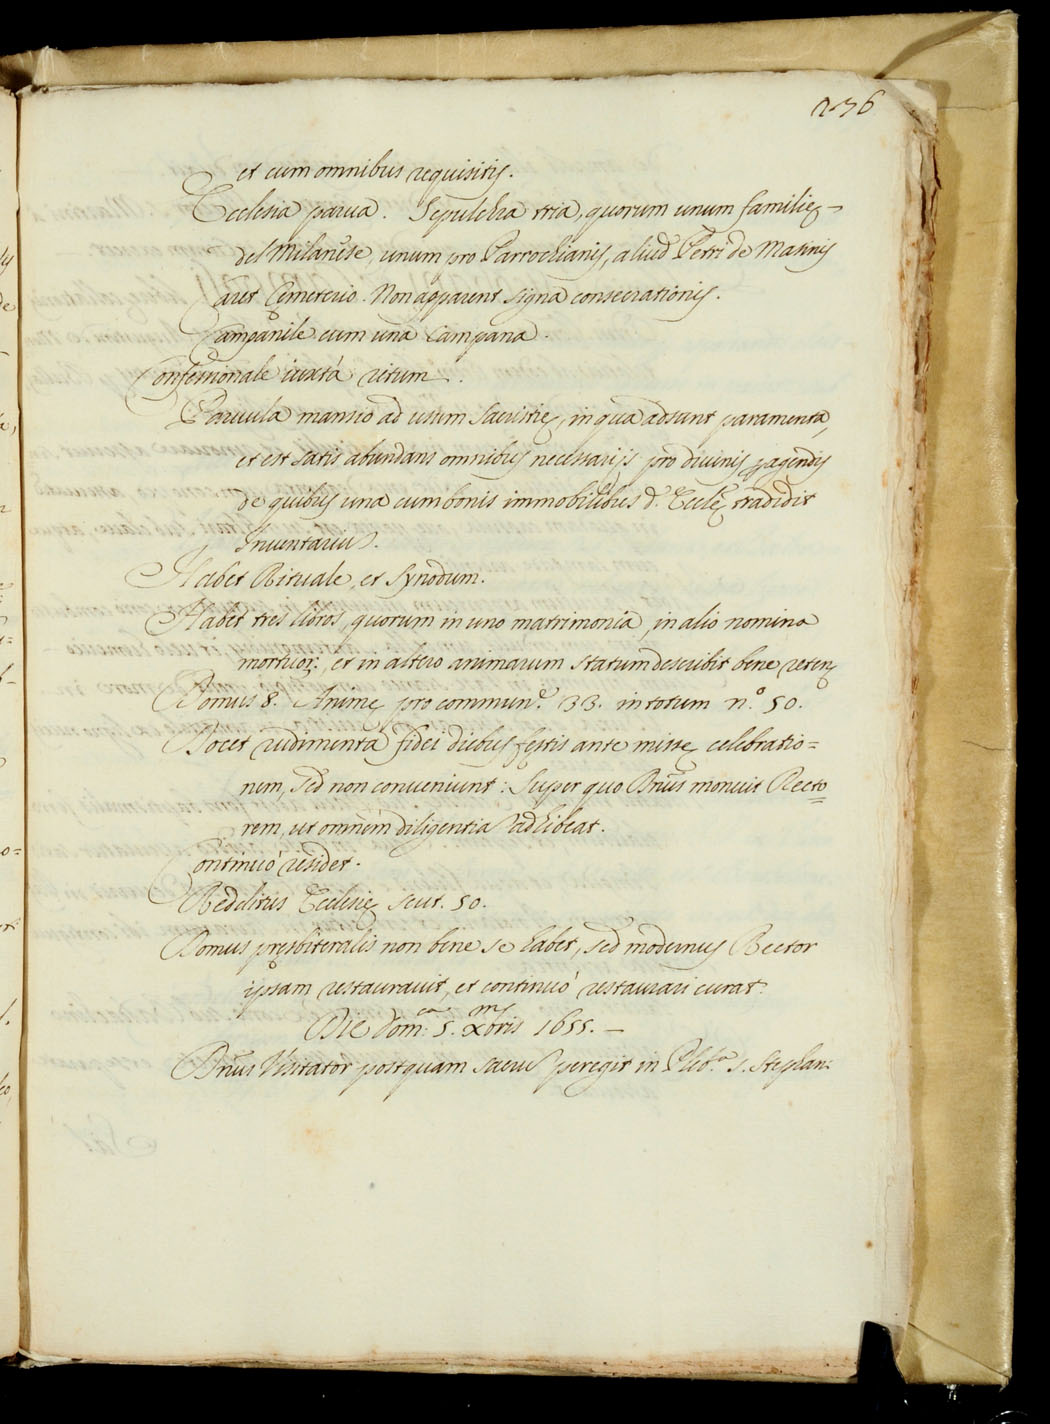 276
et cum omnibus requisitis.
Ecclesia parua. Sepulchra tria, quorum unum familię
del Milanese, unum pro Parrochianis, aliud Petri de Mannis
Caret Cemeterio. Non apparent signa consecrationis.
Campanile cum una Campana.
Confessionale iuxtà ritum.
Paruula mansio ad usum Sacristię, in qua adsunt paramenta,
et est satis abundans omnibus necessarijs pro diuinis peragendis
de quibus una cum bonis immobilibus d. Ecclę tradidit
Inuentariũ.
Habet Rituale, et Synodum.
Habet tres libros, quorum in uno matrimonia, in alio nomina
mortuor: et in altero animarum statum describit bene reten
Domus 8. Animę pro commun.e 33. in totum n.o 50.
Docet rudimenta fidei diebus festis ante missę celebratio=
nem, sed non conueniunt: Super quo Dnus monuit Recto=
rem, ut omnem diligentiã adhibeat.
Continuò residet.
Redditus Ecclesię scut. 50.
Domus pręsbiteralis non bene se habet, sed modernus Rector
ipsam restaurauit, et continuò restaurari curat.
Die Dom:ca 5. Xmbris 1655.
Dnus Visitator postquam sacrũ peregit in Pleb.a S. Stephani